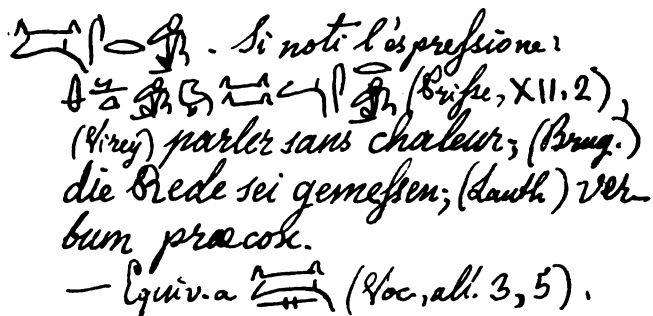 . Si noti l'espressione:
(Prisse, XII. 2),
(Virey) parler sans chaleur; (Brug.)
die Rede sei gemessen; (Lauth) ver-
bum præcox.
— Equiv. a (Voc., all. 3, 5).